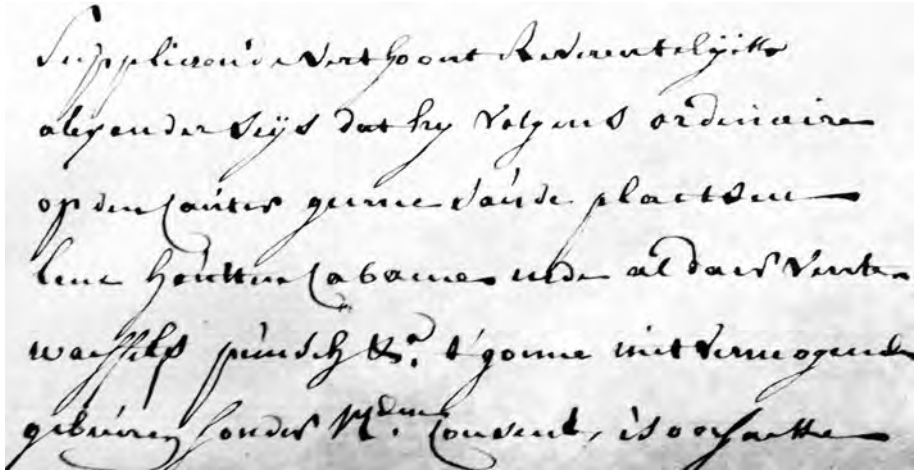 Supplierende verthoont Reverentelijck
alexander Seijs dat hij volgens ordinaire
op den Cauter geerne saude plaetsen
eene houtten Cabane ende aldaer vente
waeffels punsch &a. t'gonne niet vermogende
gebueren sonder UEd. Consent, is oorsaecke